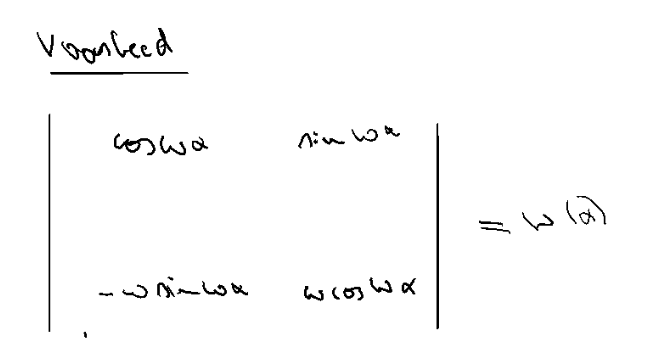 Voorbeeld
| cos ωx sin ωx |
| -ω sin ωx ω cos ωx | = W(x)